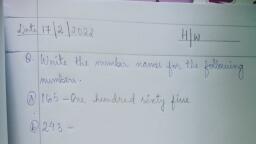 Date 17/2/2022
H/W
Q. Write the number names for the following
numbers.
a) 165 - One hundred sixty five
b) 243 -